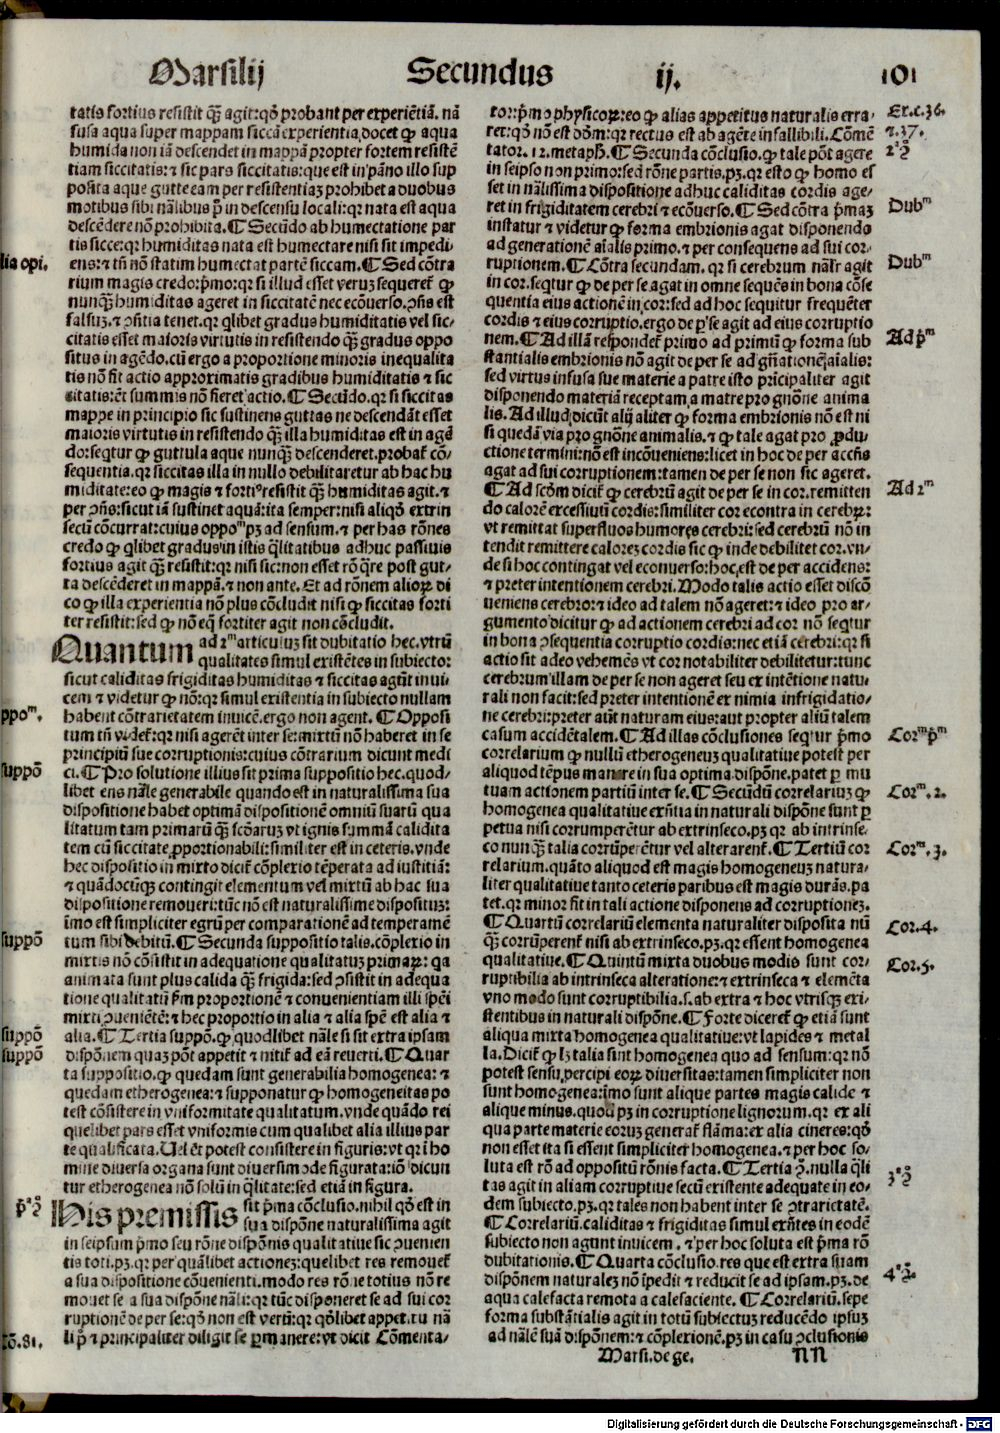 Marsilij Secundus ij. 101
tatis fortius resistit qȝ̃ agit: qd̃ probant per experiẽtiã. nã
fusa aqua super mappam siccã experientia docet ꝙ aqua
humida non iã descendet in mappã propter fortem resistẽ
tiam siccitatis: ⁊ sic pars siccitatis: que est in pãno illo sup
posita aque gutte eam per resistentiaȝ prohibet a duobus
motibus sibi nãlibus p̃ in descensu locali: qꝛ nata est aqua
descẽdere nõ prohibita. ¶ Secũdo ab humectatione par
tis sicce: qꝛ humiditas nata est humectare nisi sit impedi
ens: ⁊ tñ nõ statim humectat partẽ siccam. ¶ Sed cõtra
rium magis credo: pꝛmo: qꝛ si illud esset veruȝ sequeret̃ ꝙ
nunqȝ̃ humiditas ageret in siccitatẽ nec ecõuerso. ꝯñs est
falsuȝ. ⁊ ꝯñtia tenet. qꝛ qlibet gradus humiditatis vel sic-
citatis esset maioris virtutis in resistendo qȝ̃ gradus oppo
situs in agẽdo. cũ ergo a proportione minoris inequalita
tis nõ fit actio approximatis gradibus humiditatis ⁊ sic
sitatis: et̃ summis nõ fieret actio. ¶ Secũdo. qꝛ si siccitas
mappe in principio sic sustinens guttas ne descendãt esset
maioris virtutis in resistendo qȝ̃ illa humiditas est in agẽ
do: seqtur ꝙ guttula aque nunqȝ̃ descenderet. probat̃ cõ-
sequentia. qꝛ siccitas illa in nullo debilitaretur ab hac hu
miditate: eo ꝙ magis ⁊ fortiꝰ resistit qȝ̃ humiditas agit. ⁊
per ꝯñs: sicut iã sustinet aquã: ita semper: nisi aliqd̃ extrin
secũ cõcurrat: cuius oppoᵐ pȝ ad sensum. ⁊ per has rõnes
credo ꝙ qlibet gradus in istis qlitatibus adhuc passiuis
fortius agit qȝ̃ resistit: qꝛ nisi sic: non esset rõ qre post gut-
ta descẽderet in mappã. ⁊ non ante. Et ad rõnem alioꝝ di
co ꝙ illa experientia nõ plus cõcludit nisi ꝙ siccitas forti
ter resistit: sed ꝙ nõ eq̃ fortiter agit non cõcludit.
Quantum ad 2ᵐ articuluȝ sit dubitatio hec. vtrũ
qualitates simul existẽtes in subiecto:
sicut caliditas frigiditas humiditas ⁊ siccitas agũt inui-
cem ⁊ videtur ꝙ nõ: qꝛ simul existentia in subiecto nullam
habent cõtrarietatem inuicẽ. ergo non agent. ¶ Opposi
tum tñ videt̃: qꝛ nisi agerẽt inter se: mixtũ nõ haberet in se
principiũ sue corruptionis: cuius cõtrarium dicunt medi
ci. ¶ Pro solutione illius sit prima suppositio hec. quod-
libet ens nãle generabile quando est in naturalissima sua
dispositione habet optimã dispositionẽ omniũ suarũ qua
litatum tam primarũ qȝ̃ scõaruȝ vt ignis summã calidita
tem cũ siccitate ꝓportionabili: similiter est in ceteris. vnde
hec dispositio in mixto dicit̃ cõplexio tẽperata ad iustitiã:
⁊ quãdocũqȝ contingit elementum vel mixtũ ab hac sua
dispositione remoueri: tũc nõ est naturalissime dispositũȝ:
ĩmo est simpliciter egrũ per comparationẽ ad temperamẽ
tum sibi debitũ. ¶ Secunda suppositio talis. cõplexio in
mixtis nõ cõsistit in adequatione qualitatuȝ primaꝝ: qa
animata sunt plus calida qȝ̃ frigida: sed ꝯsistit in adequa
tione qualitatũ ẜm proportionẽ ⁊ conuenientiam illi spẽi
mixti ꝯueniẽtẽ: ⁊ hec proportio in alia ⁊ alia spẽ est alia ⁊
alia. ¶ Tertia suppõ. ꝙ quodlibet nãle si sit extra ipsam
dispõnem quaȝ põt appetit ⁊ nitit̃ ad eã reuerti. ¶ Quar
ta suppositio. ꝙ quedam sunt generabilia homogenea: ⁊
quedam etherogenea: ⁊ supponatur ꝙ homogeneitas po
test cõsistere in vniformitate qualitatum. vnde quãdo rei
quelibet pars esset vniformis cum qualibet alia illius par
te qualificata. Uel et̃ potest consistere in figuris: vt qꝛ i ho
mine diuersa organa sunt diuersimode figurata: iõ dicun
tur etherogenea nõ solũ in qlitate: sed etiã in figura.
His premissis sit pꝛma cõclusio. nihil qd̃ est in
sua dispõne naturalissima agit
in seipsum pꝛmo seu rõne dispõnis qualitatiue sic ꝯuenien
tis toti. pȝ. qꝛ per quãlibet actioneȝ: quelibet res remouet̃
a sua dispositione cõuenienti. modo res rõne totius nõ re
mouet se a sua dispõne nãli: qꝛ tũc disponeret se ad sui cor
ruptionẽ de per se: qd̃ non est verũ: qꝛ qd̃libet appet. tu nã
li p̃ ⁊ principaliter diligit se ꝑmanere: vt dicit Cõmenta-
tor: pꝛmo physicoꝝ: eo ꝙ alias appetitus naturalis erra-
ret: qd̃ nõ est dd̃m: qꝛ rectus est ab agẽte infallibili. Cõmẽ
tator. 12. metaph̃. ¶ Secunda cõclusio. ꝙ tale põt agere
in seipso non primo: sed rõne partis. pȝ. qꝛ esto ꝙ homo es
set in nãlissima dispositione adhuc caliditas cordis age-
ret in frigiditatem cerebri ⁊ ecõuerso. ¶ Sed cõtra pꝛmaȝ
instatur ⁊ videtur ꝙ forma embrionis agat disponendo
ad generationẽ aĩalis primo. ⁊ per consequens ad sui cor-
ruptionem. ¶ Cõtra secundam. qꝛ si cerebrum nãlr̃ agit
in cor. seqtur ꝙ de per se. agat in omne sequẽs in bona cõse
quentia eius actionẽ in cor: sed ad hoc sequitur frequẽter
cordis ⁊ eius corruptio. ergo de ꝑ se agit ad eius corruptio
nem. ¶ Ad illã respondet̃ primo ad primũ ꝙ forma sub
stantialis embrionis nõ agit de per se ad gñationeȝ aĩalis:
sed virtus infusa sue materie a patre isto pꝛicipaliter agit
disponendo materiã receptam a matre pro gnõne anima
lis. Ad illud dicũt alij aliter ꝙ forma embrionis nõ est ni
si quedã via pro gnõne animalis. ⁊ ꝙ tale agat pro ꝓdu-
ctione termini: nõ est incõueniens: licet in hoc de per accñs
agat ad sui corruptionem: tamen de per se non sic ageret.
¶ Ad scdm̃ dicit̃ ꝙ cerebrũ agit de per se in cor. remitten
do calorẽ excessiuũ cordis: similiter cor econtra in cerebꝝ:
vt remittat superfluos humores cerebri: sed cerebrũ nõ in
tendit remittere caloreȝ cordis sic ꝙ inde debilitet cor. vn-
de si hoc contingat vel econuerso: hoc est de per accidens:
⁊ preter intentionem cerebri. Modo talis actio esset discõ
ueniens cerebro: ⁊ ideo ad talem nõ ageret: ⁊ ideo pro ar-
gumento dicitur ꝙ ad actionem cerebri ad cor nõ seqtur
in bona ꝯsequentia corruptio cordis: nec etiã cerebri: qꝛ si
actio sit adeo vehemẽs vt cor notabiliter debilitetur: tunc
cerebrum illam de per se non ageret seu ex intẽtione natu-
rali non facit: sed preter intentionẽ ex nimia infrigidatio-
ne cerebri: preter aũt naturam eius: aut propter aliũ talem
casum accidẽtalem. ¶ Ad illas cõclusiones seqtur pꝛmo
correlarium ꝙ nullũ etherogeneuȝ qualitatiue potest per
aliquod tẽpus manere in sua optima dispõne. patet ꝑ mu
tuam actionem partiũ inter se. ¶ Secũdũ correlariuȝ ꝙ
homogenea qualitatiue exñtia in naturali dispõne sunt ꝑ
petua nisi corrumperẽtur ab extrinseco. pȝ qꝛ ab intrinse-
co nunqȝ̃ talia corrũperẽtur vel alterarent̃. ¶ Tertiũ cor
relarium. quãto aliquod est magis homogeneuȝ natura-
liter qualitatiue tanto ceteris paribus est magis durãs. pa
tet. qꝛ minor fit in tali actione disponens ad corruptioneȝ.
¶ Quartũ correlariũ elementa naturaliter disposita nũ
qȝ̃ corrũperent̃ nisi ab extrinseco. pȝ. qꝛ essent homogenea
qualitatiue. ¶ Quintũ mixta duobus modis sunt cor-
ruptibilia ab intrinseca alteratione: ⁊ extrinseca ⁊ elemẽta
vno modo sunt corruptibilia. s. ab extra ⁊ hoc vtrisqȝ exi-
stentibus in naturali dispõne. ¶ Forte diceret̃ ꝙ etiã sunt
aliqua mixta homogenea qualitatiue: vt lapides ⁊ metal
la. Dicit̃ ꝙ lȝ talia sint homogenea quo ad sensum: qꝛ nõ
potest sensu percipi eoꝝ diuersitas: tamen simpliciter non
sunt homogenea: ĩmo sunt alique partes magis calide ⁊
alique minus. quod pȝ in corruptione lignorum. qꝛ ex ali
qua parte materie eoruȝ generat̃ flãma: ex alia cineres: qd̃
non esset ita si essent simpliciter homogenea. ⁊ per hoc so-
luta est rõ ad oppositũ rõnis facta. ¶ Tertia ꝯ̃. nulla qli
tas agit in aliam corruptiue secũ existente adequate in eo-
dem subiecto. pȝ. qꝛ tales non habent inter se ꝯtrarietatẽ.
¶ Correlariũ. caliditas ⁊ frigiditas simul exñtes in eodẽ
subiecto non agunt inuicem. ⁊ per hoc soluta est pꝛma rõ
dubitationis. ¶ Quarta cõclusio. res que est extra suam
dispõnem naturaleȝ nõ ipedit ⁊ reducit se ad ipsam. pȝ. de
aqua calefacta remota a calefaciente. ¶ Correlariũ. sepe
forma substãtialis agit in totũ subiectuȝ reducẽdo ipsuȝ
ad nãlẽ suã dispõnem: ⁊ cõplexionẽ. pȝ in casu ꝯclusionis
Marsi. de ge. NN
lia opi.
ppoᵐ.
suppõ
suppõ
suppõ
suppõ
pᵃ ꝯ̊
cõ. 81.
Er. c. 36.
⁊. 37.
2ᵃ ꝯ̊
Dubᵐ
Dubᵐ
Ad pᵐ
Ad 2ᵐ
Corᵐ pᵐ
Corᵐ. 2.
Corᵐ. 3.
Cor. 4.
Cor. 5.
3ᵃ ꝯ̊
4ᵃ ꝯ̊.
Digitalisierung gefördert durch die Deutsche Forschungsgemeinschaft - DFG